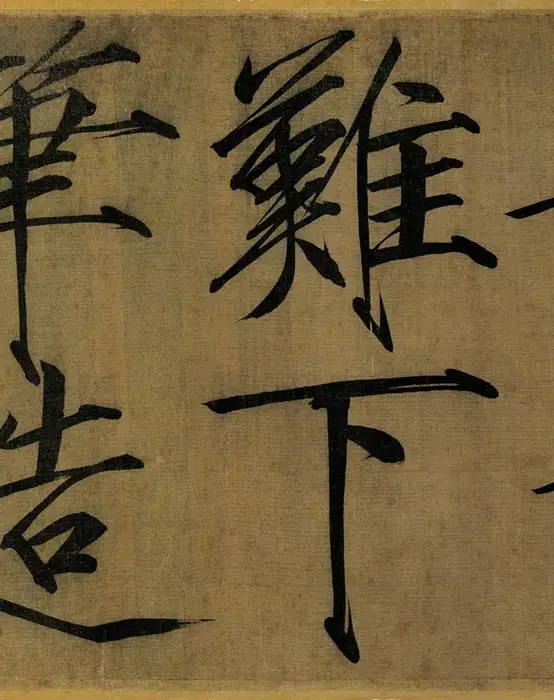 難下
筆造